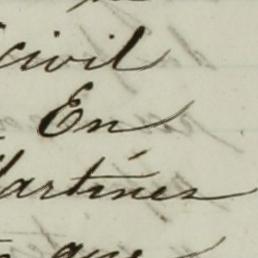 civil
En
Martínez
que